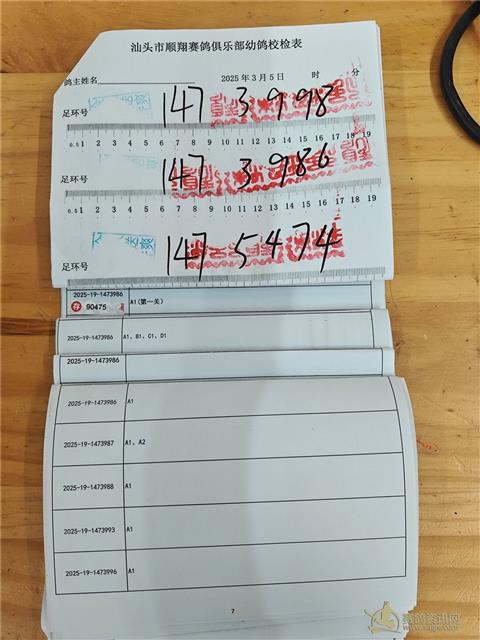 汕头市顺翔赛鸽俱乐部幼鸽校检表
鸽主姓名 2025年3月5日 时 分
足环号 147 3998
0.5 1 2 3 4 5 6 7 8 9 10 11 12 13 14 15 16 17 18 19
足环号 147 3986
0.5 1 2 3 4 5 6 7 8 9 10 11 12 13 14 15 16 17 18 19
足环号 147 5474
2025-19-1473986 A1(第一关)
90475
2025-19-1473986 A1、B1、C1、D1
2025-19-1473986
2025-19-1473986 A1
2025-19-1473987 A1、A2
2025-19-1473988 A1
2025-19-1473993 A1
2025-19-1473996 A1
7